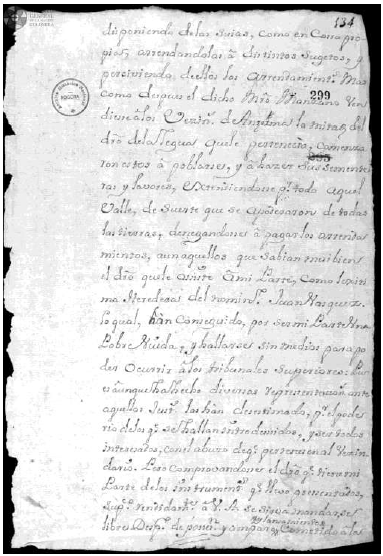 134
disponiendo de las suias, como en Cosa pro
pia, arrendandolas à distintos Sugetos, y
perciviendo de ellos los Arrendamint.s Mas
como despues el dicho Mrō Manzano Ven
299
diese à los Vezin.s de la mitad del
dr̄o de la Legua que le pertenecia, comenza
ron estos à poblarse, y à hazer sus semente
ras y lavores, extendiendose p.r todo aquel
Valle, de suerte que se aposesaron de todas
las tierras, denegandose à pagar los arrenda
mientos, aun aquellos que sabian mui bien
el dr̄o que le asiste à mi Parte, como lexiti
ma Heredera del nomin.do Juan Vasquez
lo qual, han conseguido, por ser mi Parte Una
Pobre Viuda, y hallarse sin medios para po
der Ocurrir à los tribunales Superiores: Pues
aunque ha hecho diversas representaciones ante
aquellos Just.s la han desestimado, p.r el pode
rio de los q.e se hallan introducidos, y ser todos
interesados, con el abuso de q.e persevere el Vezin
dario. Pero comprovandose el dr̄o q.e tiene mi
Parte de los instrument.s q.e llevo presentados,
Sup.co rendidam.te à V. A. se sirva mandar se
libre Desp.o de poner y amparo y lanzamiento Cometido à los